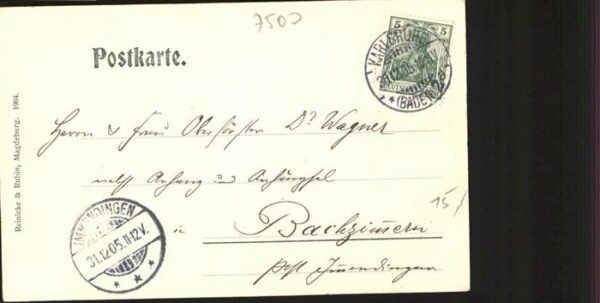 7500
Postkarte.
5 5
KARLSRUHE
31.12.05.11-12V.
* (BADEN) 2 *
Herrn & Frau Oberförster Dr Wagner
nebst Anhang und Anhängsel
in Bachzimmern
Post Immendingen
15/
IMMENDINGEN
31.12.05.11-12V.
* * *
Reinicke & Rubin, Magdeburg. 1904.